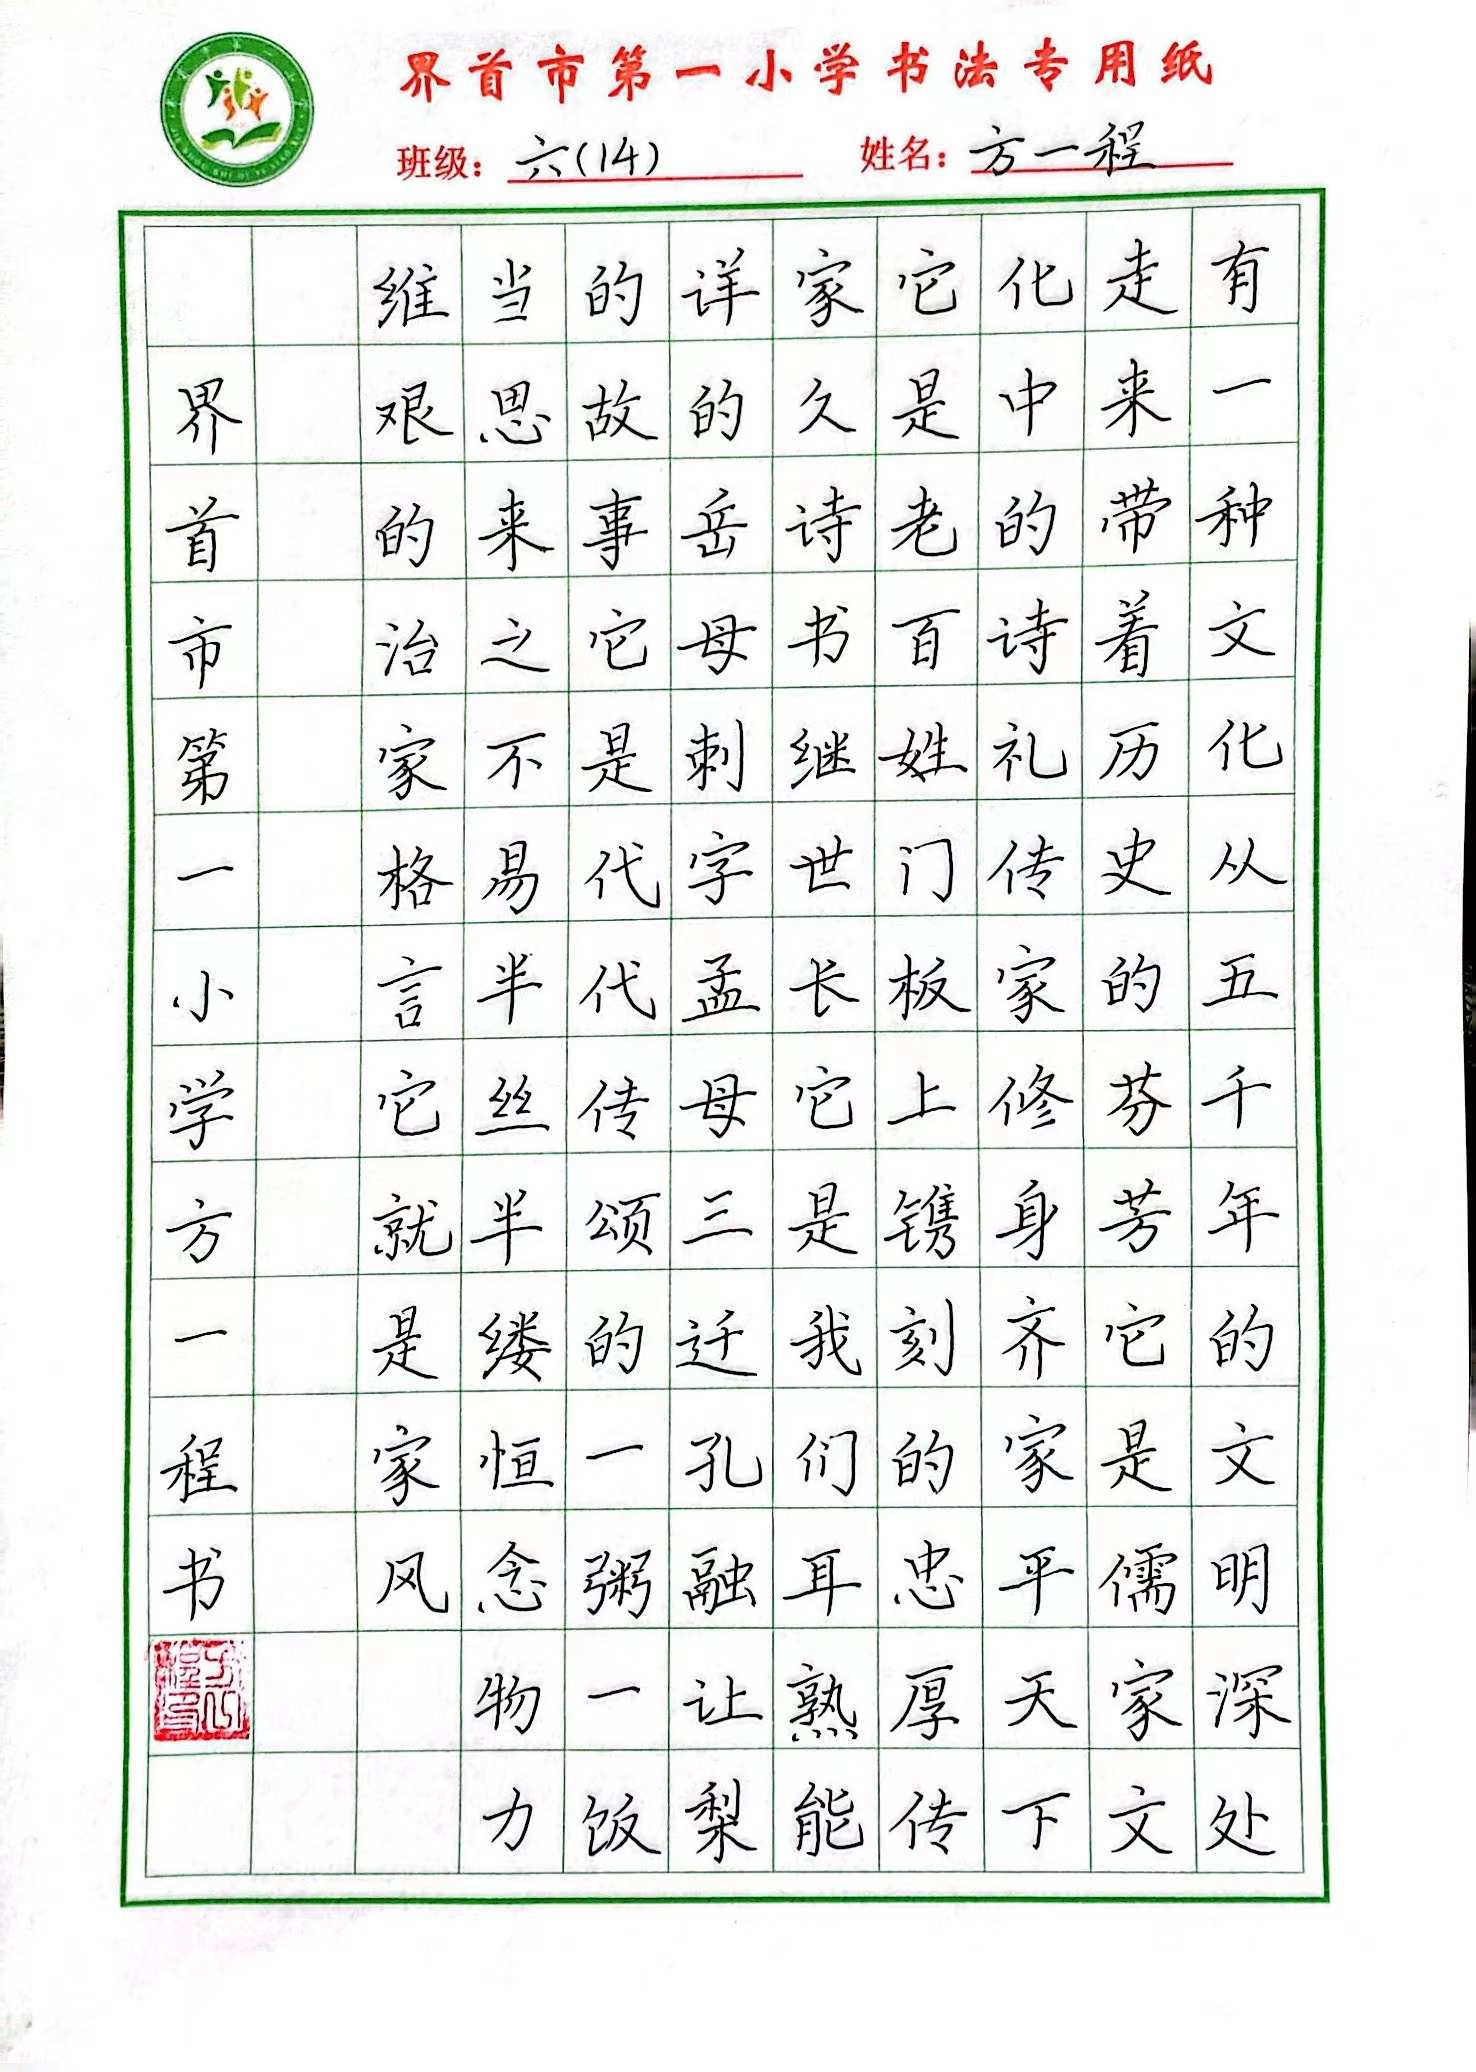 界首市第一小学书法专用纸
班级：六(14) 姓名：方一程
有一种文化从五千年的文明深处
走来带着历史的芬芳它是儒家文
化中的诗礼传家修身齐家平天下
它是老百姓门板上镌刻的忠厚传
家久诗书继世长它是我们耳熟能
详的岳母刺字孟母三迁孔融让梨
的故事它是代代传颂的一粥一饭
当思来之不易半丝半缕恒念物力
维艰的治家格言它就是家风
界首市第一小学方一程书